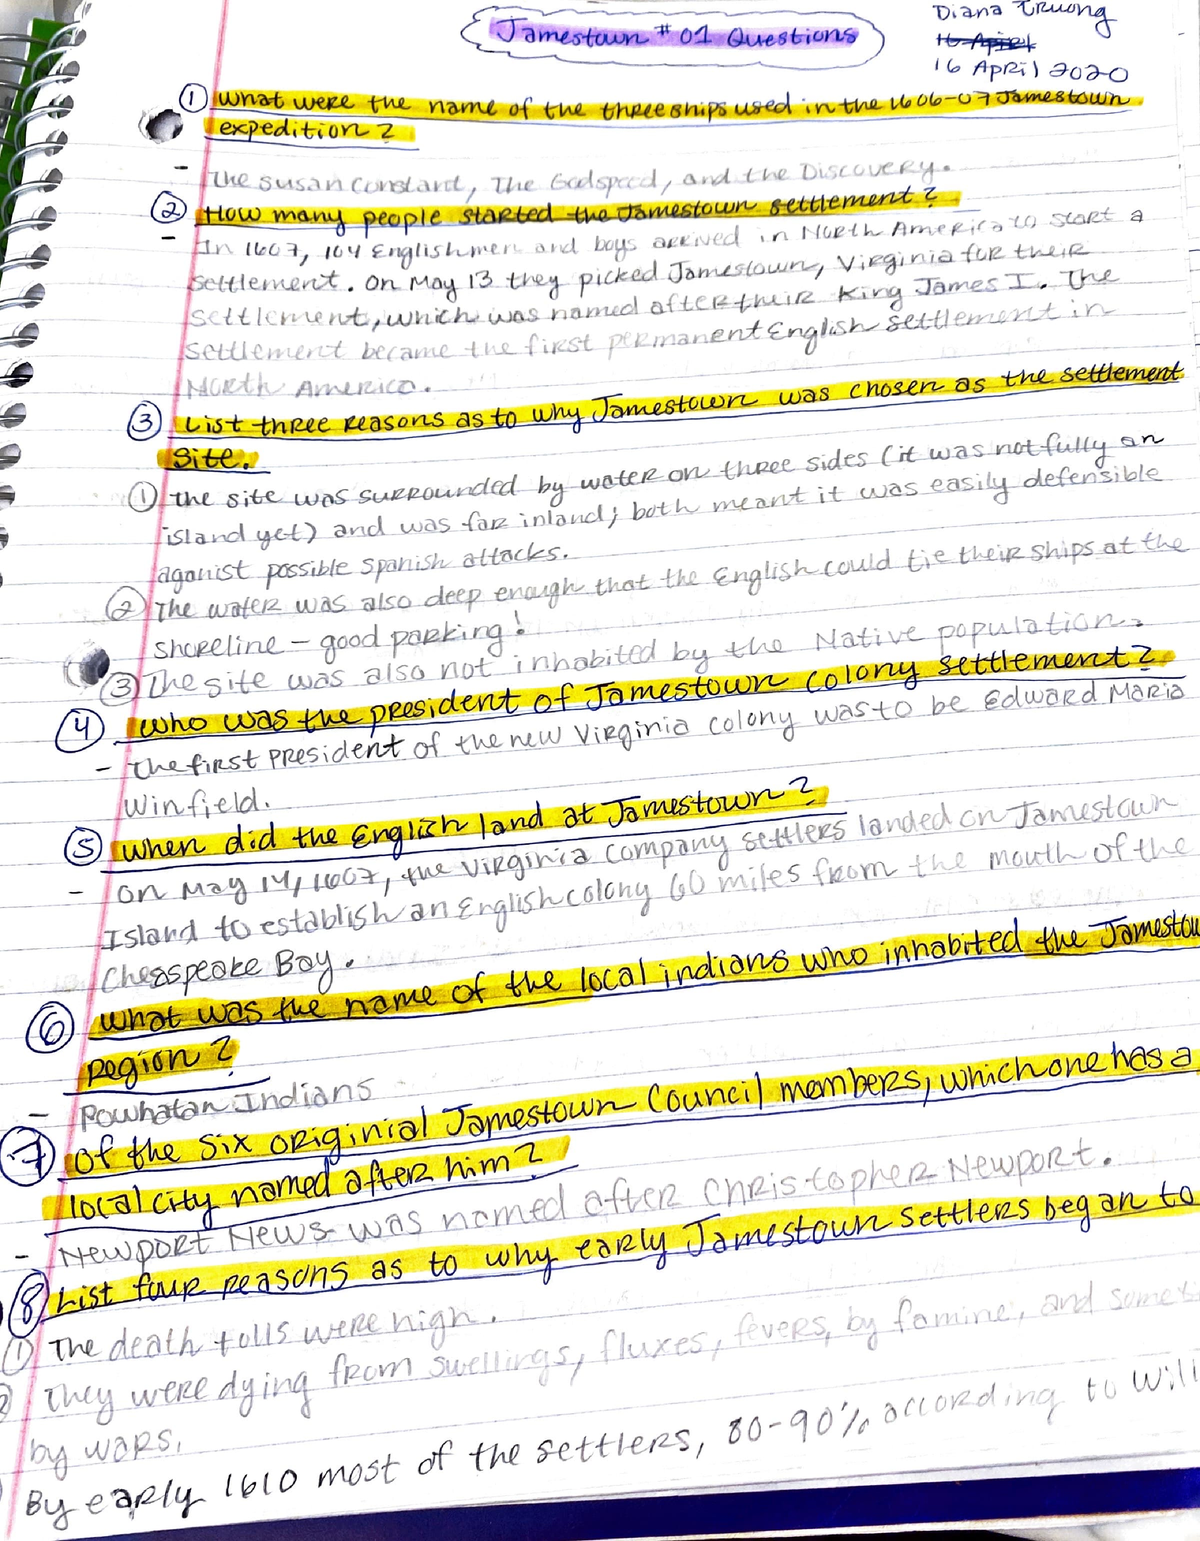 Jamestown #01 Questions
Diana Truong
16 April
16 April 2020
① What were the name of the three ships used in the 1606-07 Jamestown
expedition?
- The Susan Constant, The Godspeed, and the Discovery.
② How many people started the Jamestown settlement?
- In 1607, 104 English men and boys arrived in North America to start a
settlement. On May 13 they picked Jamestown, Virginia for their
settlement, which was named after their King James I. The
settlement became the first permanent English settlement in
North America.
③ List three reasons as to why Jamestown was chosen as the settlement
site.
① The site was surrounded by water on three sides (it was not fully an
island yet) and was far inland; both meant it was easily defensible
aganist possible Spanish attacks.
② The water was also deep enough that the English could tie their ships at the
shoreline - good parking!
③ The site was also not inhabited by the Native population.
④ Who was the president of Jamestown colony settlement?
- The first president of the new Virginia colony was to be Edward Maria
Winfield.
⑤ When did the English land at Jamestown?
- On May 14, 1607, the Virginia Company settlers landed on Jamestown
Island to establish an English colony 60 miles from the mouth of the
Cheaspeake Bay.
⑥ What was the name of the local indians who inhabited the Jamestow
region?
- Powhatan Indians
⑦ Of the six originial Jamestown Council members, which one has a
local city named after him?
- Newport News was named after Christopher Newport.
⑧ List four reasons as to why early Jamestown settlers began to
① The death tolls were high.
② They were dying from swellings, fluxes, fevers, by famine, and somet
by wars.
By early 1610 most of the settlers, 80-90% according to Willi